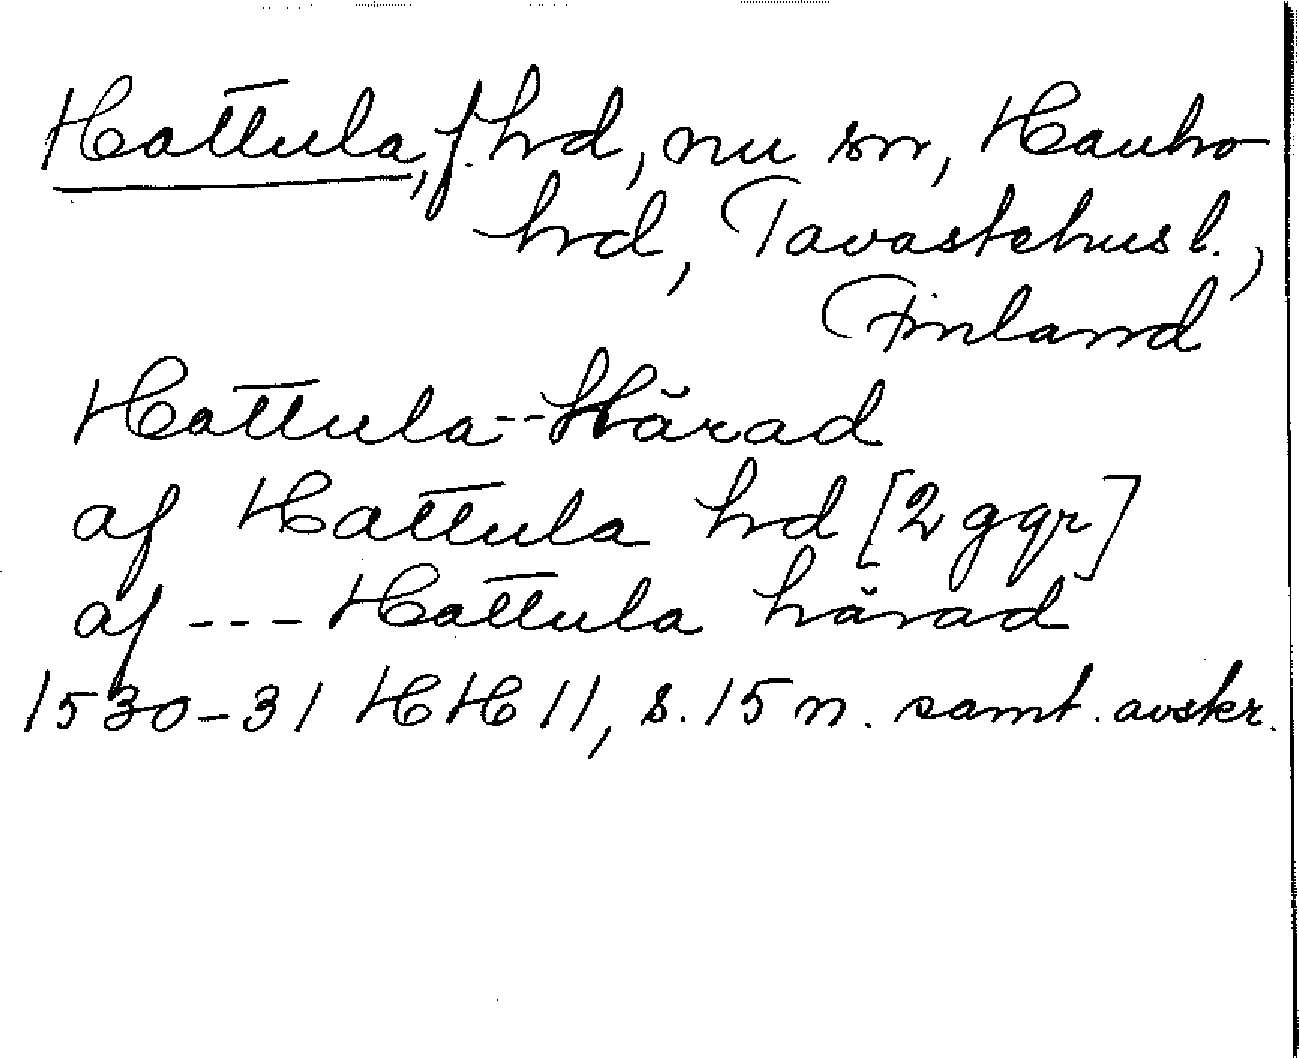 Hattula, f. hrd, nu sn, Hauho
hrd, Tavastehus l.,
Finland
Hattula--Härad
af Hattula hrd [2 ggr]
af --- Hattula härad
1530-31 HH 11, s. 15 n. samt. avskr.